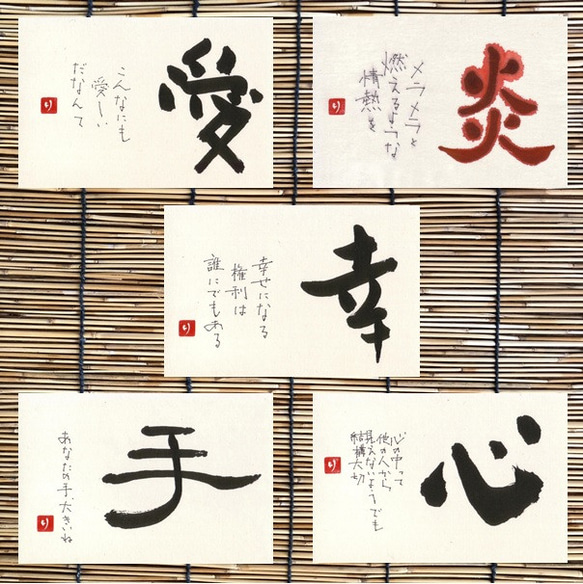 愛
こんなにも
愛しい
だなんて
炎
メラメラと
燃えるような
情熱を
幸
幸せになる
権利は
誰にでもある
手
あなたの手、大きいね
心
心の中って
他の人から
見えないようでも
結構大切